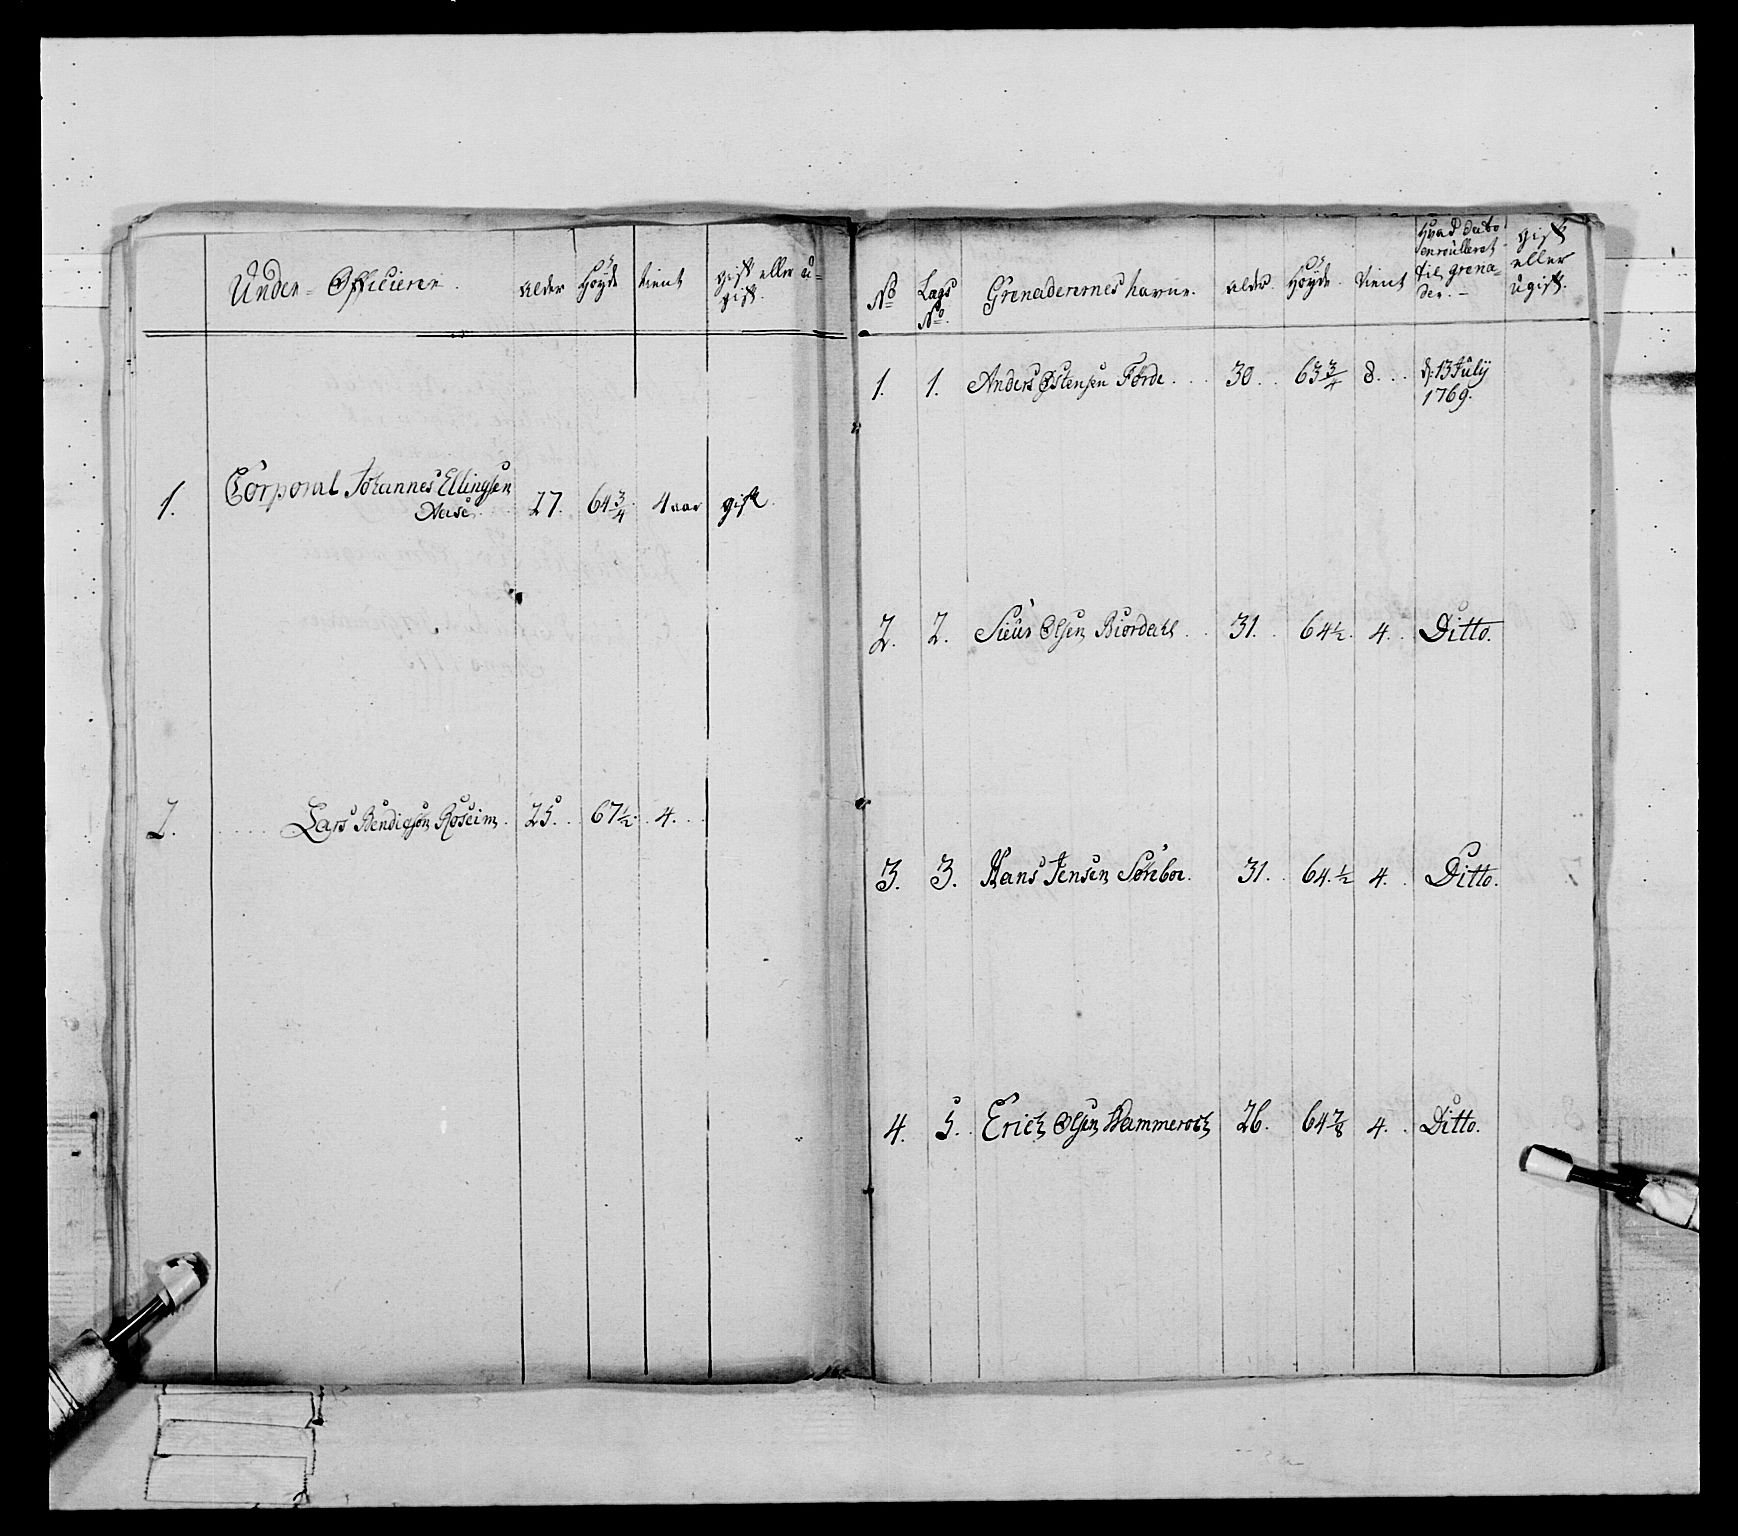 Under-Officierer. alder Höyde tient gift eller u-
gift.
1. Corporal Johannes Ellingsen 27. 64 3/4 4 aar gift.
Aase.
2. Lars Bendigsøn Roseim. 25. 67 1/2. 4.
No Lags Grenaderernes navne. alder. Höyde. tient Hvad Dato gift
No. enroulleret eller
til grena- ugift.
der.
1. 1. Anders Østensen Førde. 30. 63 3/4 8. d: 13 July
1769.
2. 2. Siur Olsen Biørdahl. 31. 64 1/2. 4. Ditto.
3. 3. Hans Jensen Søreboe. 31. 64. 1/2 4. Ditto.
4. 5. Erich Olsen Hammeroch 26. 64 7/8 4. Ditto.